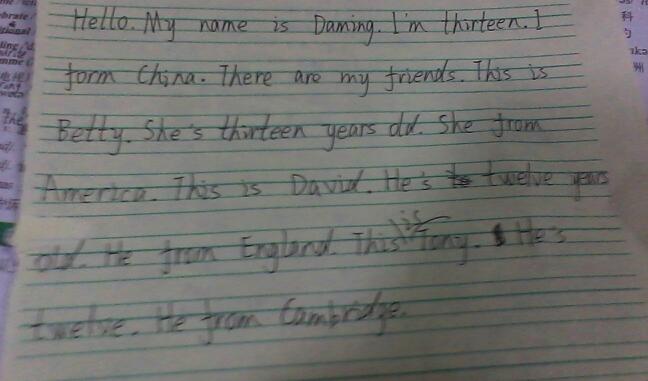 Hello. My name is Daming. I'm thirteen. I
form China. There are my friends. This is
Betty. She's thirteen years old. She from
America. This is David. He's twelve years
old. He from England. This is Tony. He's
twelve. He from Cambridge.